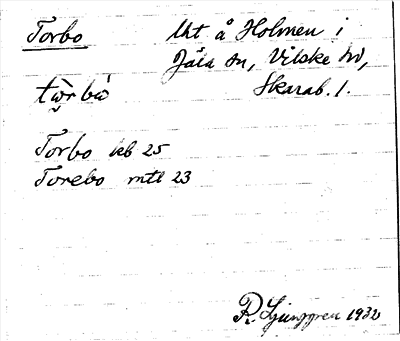 Torbo Utt å Holmen i
Jäla sn, Vilske hd,
tὼrbὼ Skarab. l.
Torbo kb 25
Torebo mtl 23
R. Ljunggren 1932